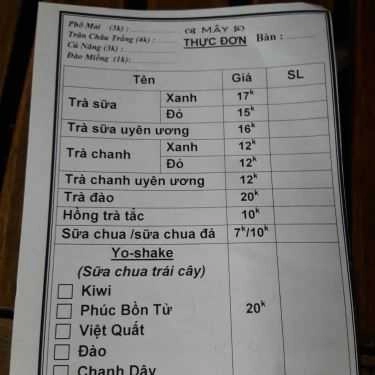 Phô Mai (3k) :
Trân Châu Trắng (4k) :
Củ Năng (3k) :
Đào Miếng (1k):
MÂY
THỰC ĐƠN Bàn :
Tên Giá SL
Trà sữa Xanh 17k
Đỏ 15k
Trà sữa uyên ương 16k
Trà chanh Xanh 12k
Đỏ 12k
Trà chanh uyên ương 12k
Trà đào 20k
Hồng trà tắc 10k
Sữa chua /sữa chua đá 7k/10k
Yo-shake
(Sữa chua trái cây)
Kiwi
Phúc Bồn Tử 20k
Việt Quất
Đào
Chanh Dây